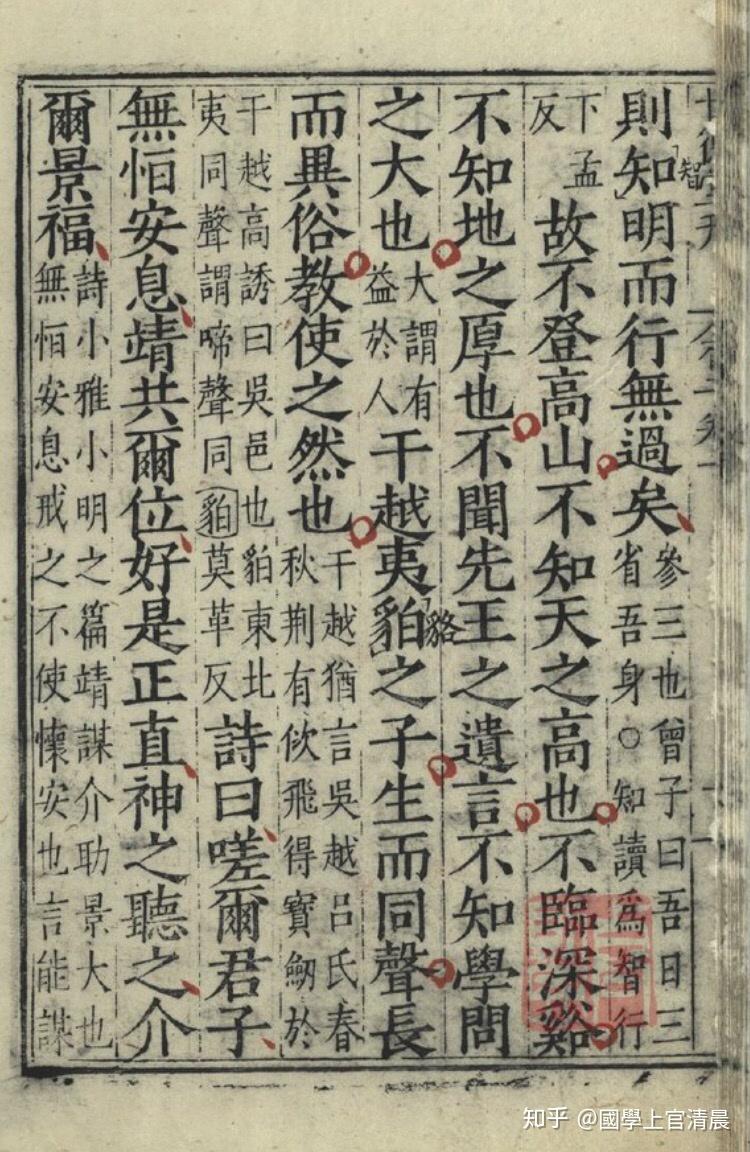 則知明而行無過矣參三也曾子曰吾日三省吾身○知讀爲智行
智
下孟反故不登高山不知天之高也不臨深谿
不知地之厚也不聞先王之遺言不知學問
之大也大謂有益於人干越夷貃之子生而同聲長
貉
而異俗教使之然也干越猶言吳越呂氏春秋荆有佽飛得寳劒於
干越高誘曰吳邑也貃東北夷同聲謂啼聲同貃莫革反詩曰嗟爾君子
無恒安息靖共爾位好是正直神之聽之介
爾景福詩小雅小明之篇靖謀介助景大也無恒安息戒之不使懷安也言能謀
知乎 @國學上官清晨